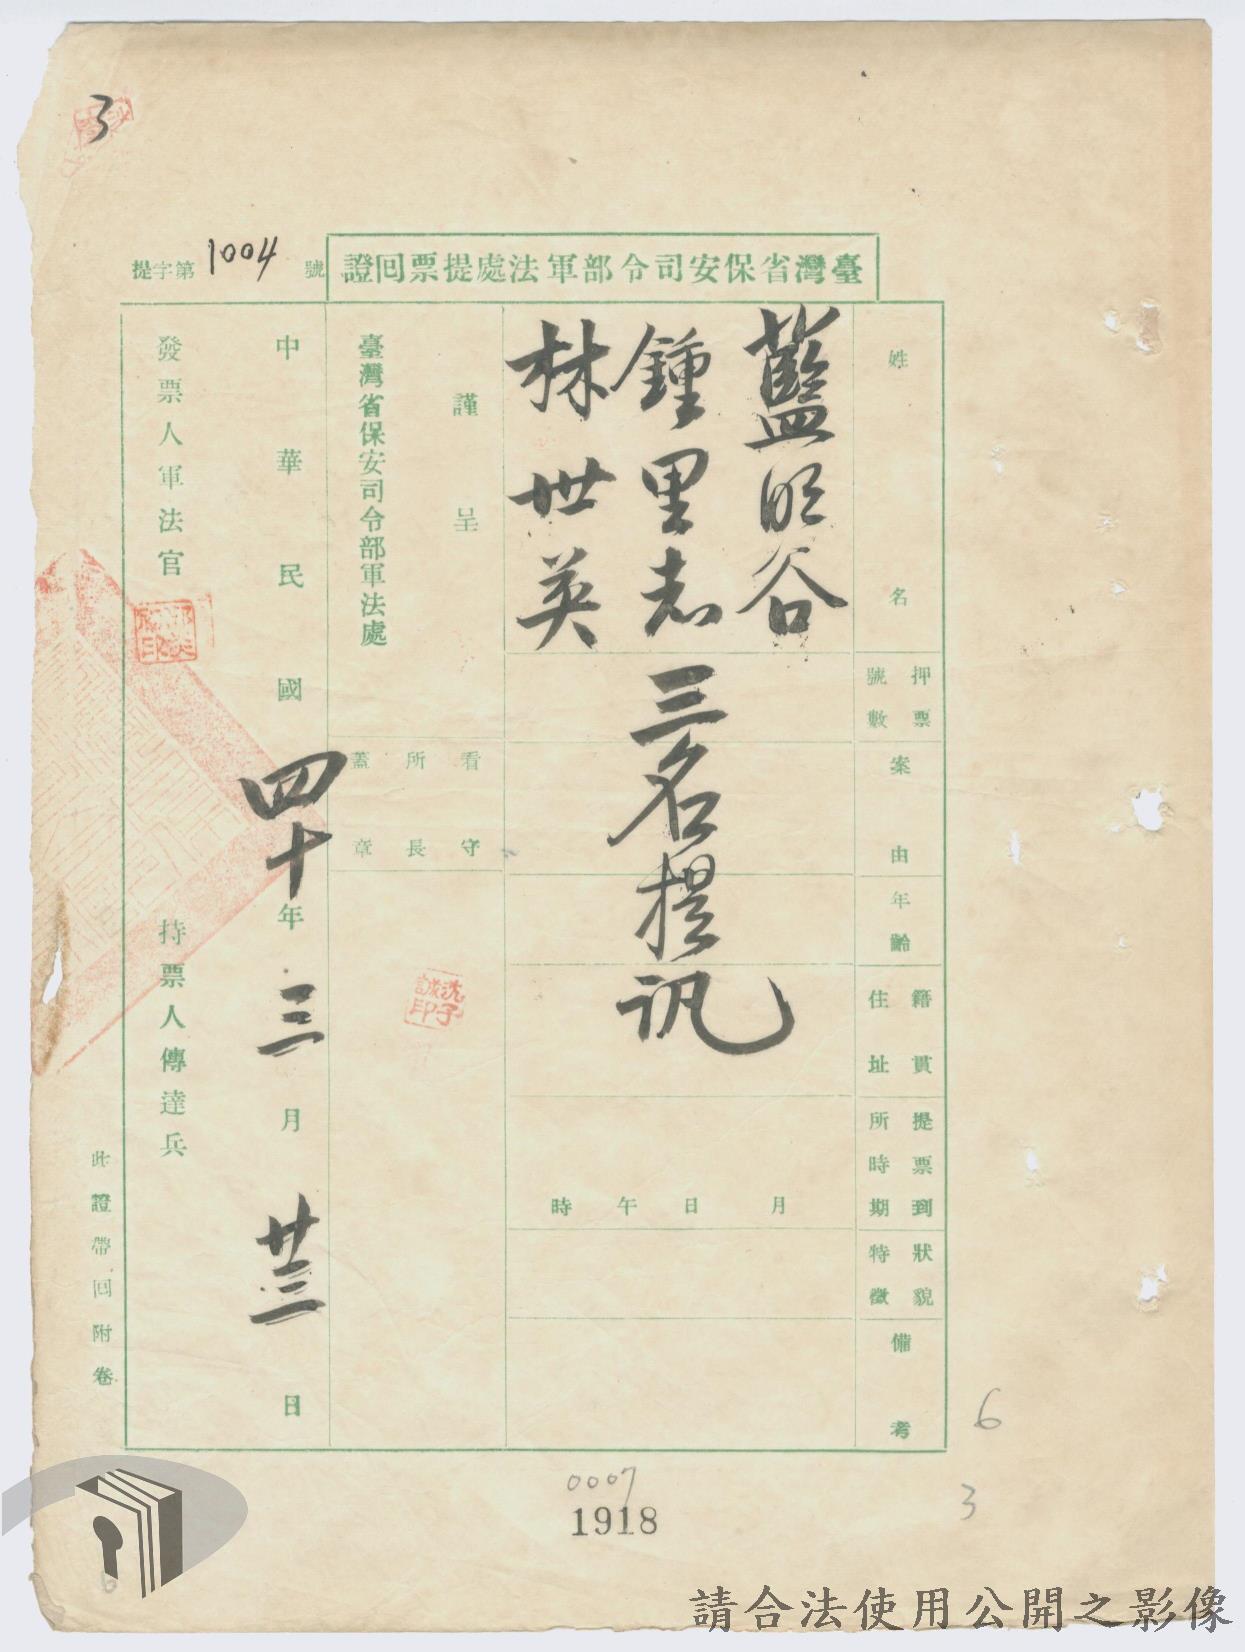 3
臺灣省保安司令部軍法處提票回證
提字第1004號
姓名
押票號數
案由
年齡
籍貫住址
提票到所時期
狀貌特徵
備考
藍明谷
鍾里志
林世英
三名提訊
月日午時
謹呈
臺灣省保安司令部軍法處
看守所長蓋章
沈子誠印
中華民國四十年三月廿三日
發票人軍法官
持票人傳達兵
此證帶回附卷
6
0007
1918
3
6
請合法使用公開之影像